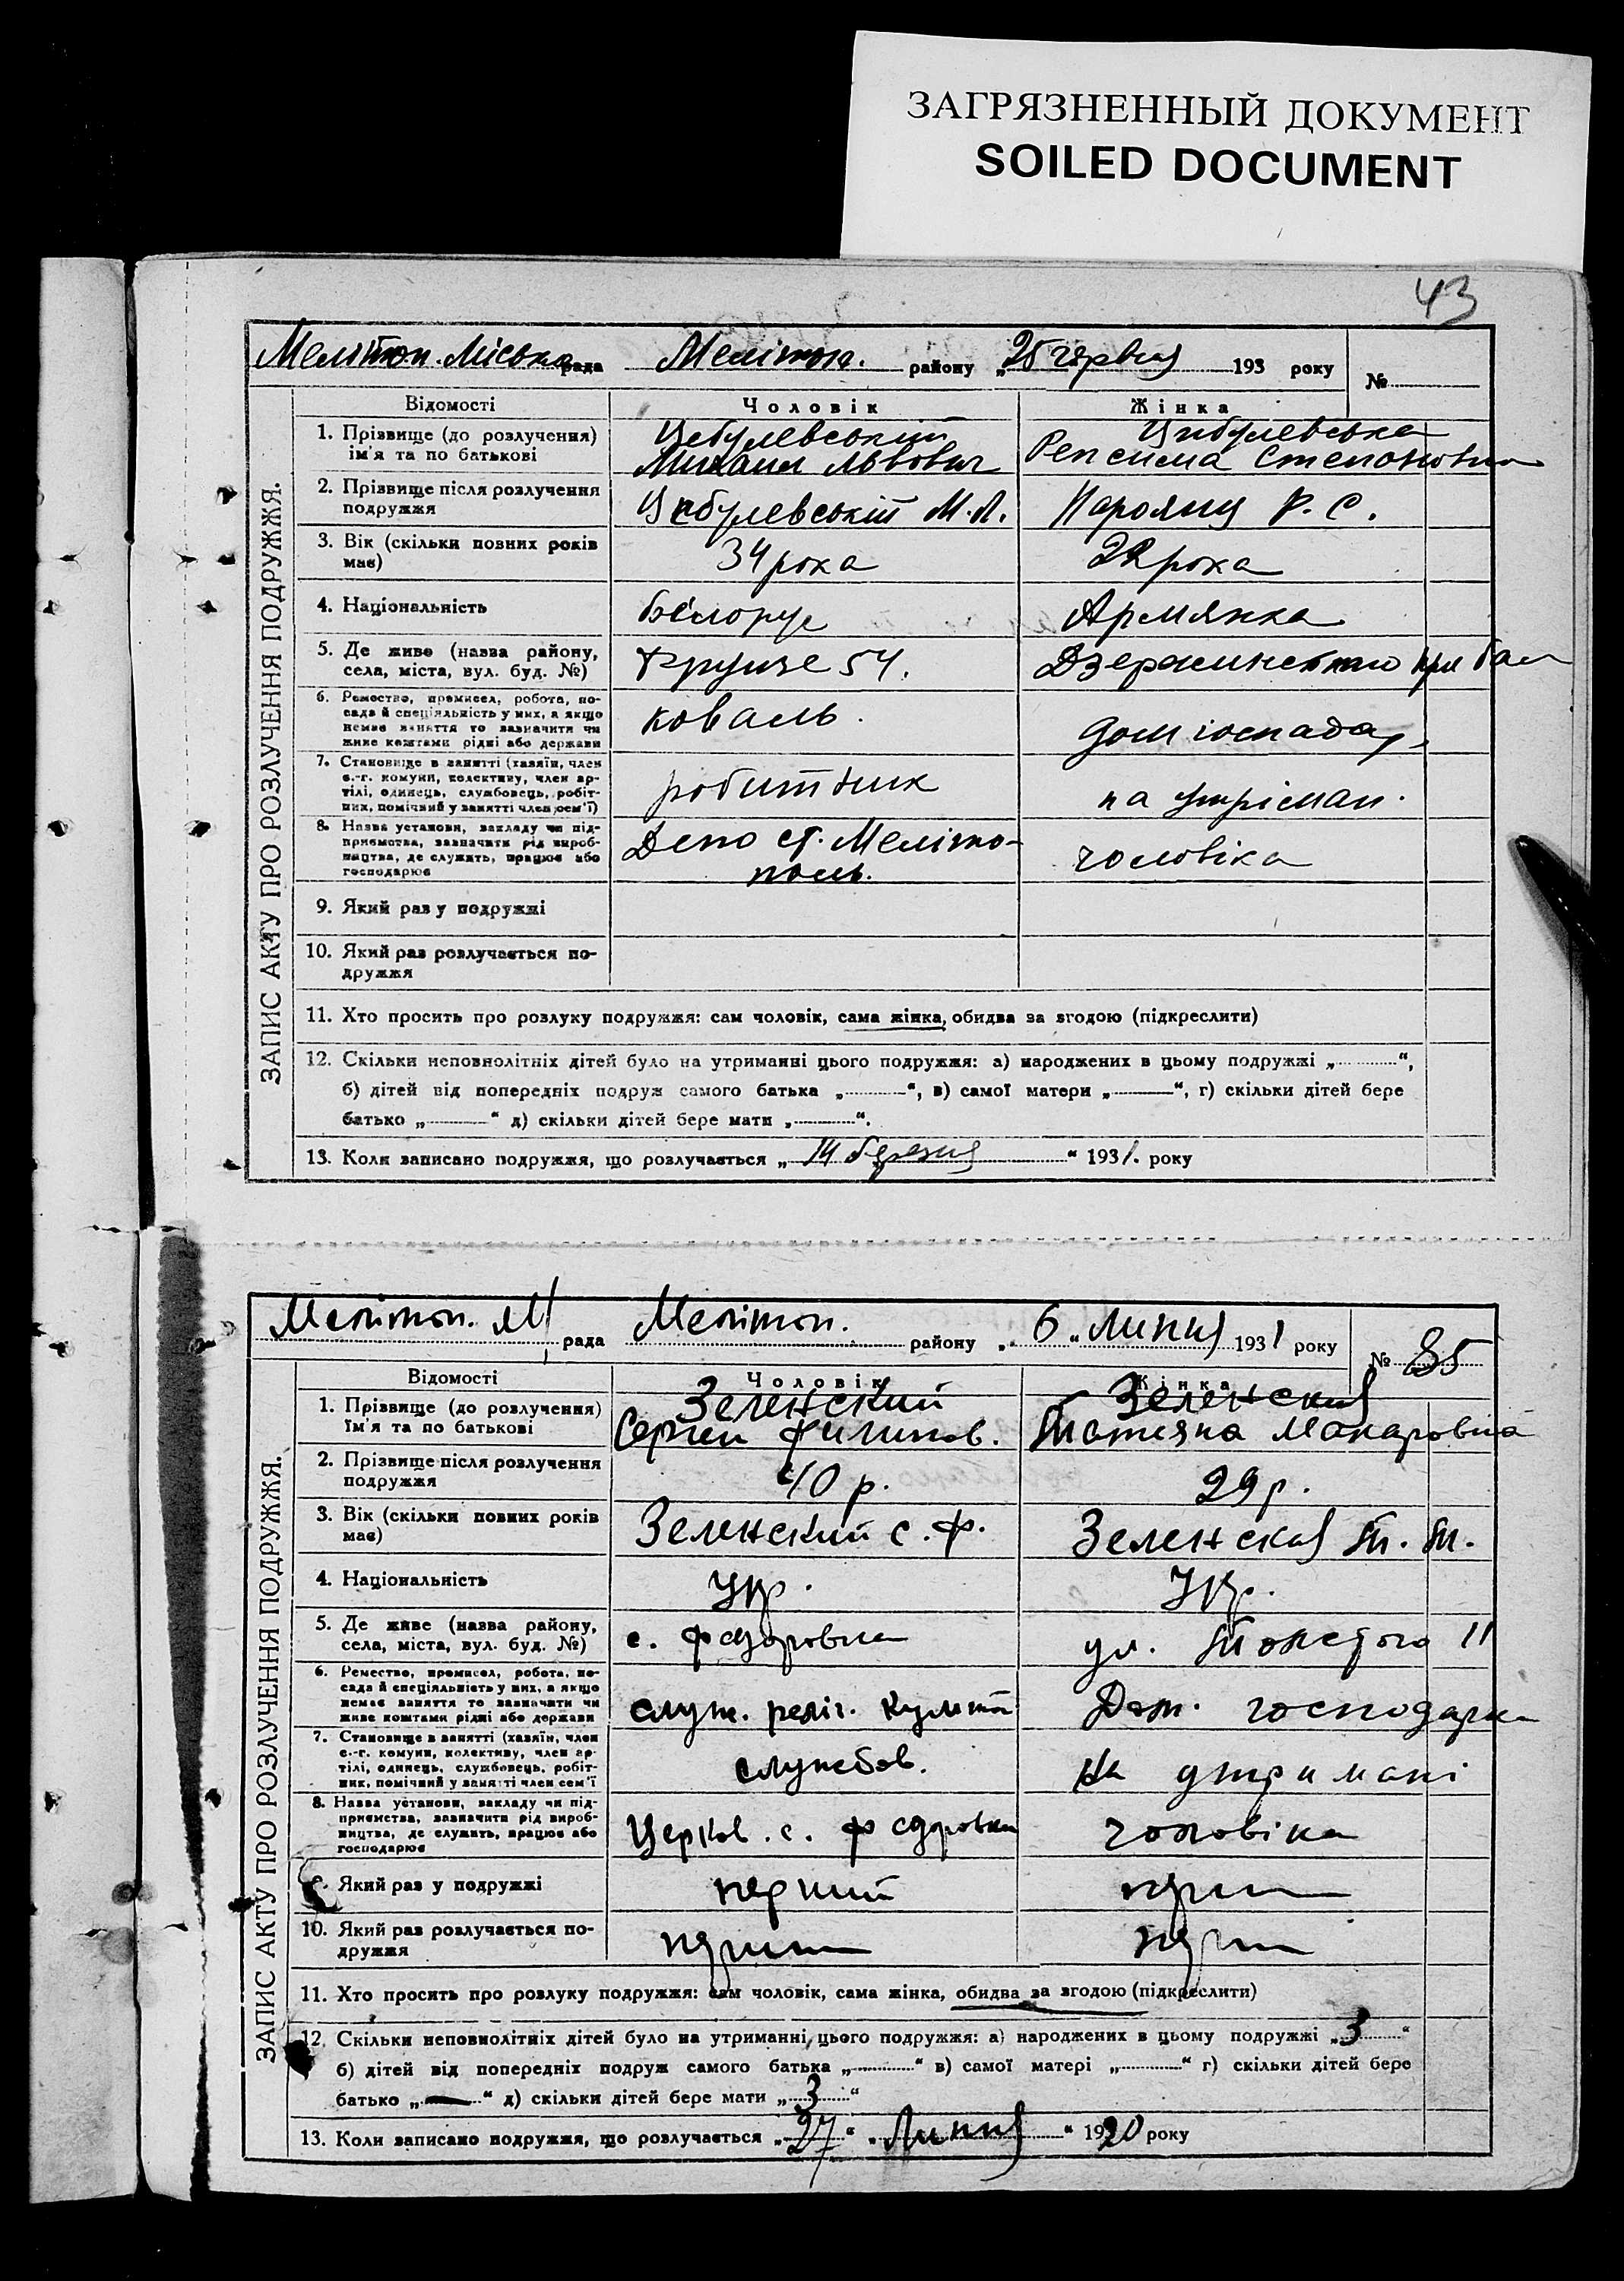 ЗАГРЯЗНЕННЫЙ ДОКУМЕНТ
SOILED DOCUMENT
43
ЗАПИС АКТУ ПРО РОЗЛУЧЕННЯ ПОДРУЖЖЯ.
Меліт­оп. Міська рада Мелітоп. району „25 червня 193 року №
Відомості Чоловік Жінка
1. Прізвище (до розлучення) ім'я та по батькові
Цебулевський Цибулевська
Михаил Львович Репсима Степановна
2. Прізвище після розлучення подружжя
Цебулевський М.Л. Р. С.
3. Вік (скільки повних років має)
34 рока 22 рока
4. Національність
Білорус Армянка
5. Де живе (назва району, села, міста, вул. буд. №)
Фрунзе 54.
6. Ремество, промисел, робота, посада й спеціяльність у них, а якщо немає заняття то зазначити чи живе коштами рідні або держави
коваль. дом господар
7. Становище в занятті (хазяїн, член с.-г. комуни, колективу, член артілі, одинець, службовець, робітник, помічний у занятті член сем'ї)
робитник на утріман.
8. Назва установи, закладу чи підприємства, зазначити рід виробництва, де служить, працює або господарює
Депо ст. Меліто-
поль. чоловіка
9. Який раз у подружжі
10. Який раз розлучається подружжя
11. Хто просить про розлуку подружжя: сам чоловік, сама жінка, обидва за згодою (підкреслити)
12. Скільки неповнолітніх дітей було на утриманні цього подружжя: а) народжених в цьому подружжі „ “,
б) дітей від попередніх подруж самого батька „ “, в) самої матери „ “, г) скільки дітей бере
батько „ “ д) скільки дітей бере мати „ “.
13. Коли записано подружжя, що розлучається „14 березня “ 1931. року
ЗАПИС АКТУ ПРО РОЗЛУЧЕННЯ ПОДРУЖЖЯ.
Мелітоп. М/ рада Мелітоп. району „6„ липня 1931 року № 85
Відомості Чоловік Жінка
1. Прізвище (до розлучення) ім'я та по батькові
Зеленский Зеленская
Сергей Филипов. Татяна Макаровна
2. Прізвище після розлучення подружжя
40 р. 29 р.
3. Вік (скільки повних років має)
Зеленский С. Ф. Зеленская Т. М.
4. Національність
Укр. Укр.
5. Де живе (назва району, села, міста, вул. буд. №)
с. Федоровка ул. Толстого 11
6. Ремество, промисел, робота, посада й спеціяльність у них, а якщо немає заняття то зазначити чи живе коштами рідні або держави
служ. реліг. культа Дом. господарка
7. Становище в занятті (хазяїн, член с.-г. комуни, колективу, член артілі, одинець, службовець, робітник, помічний у занятті член сем'ї
службов. На утримані
8. Назва установи, закладу чи підприємства, зазначити рід виробництва, де служить, працює або господарює
Церков. с. Федоровка чоловіка
9. Який раз у подружжі
перший перши
10. Який раз розлучається подружжя
перши перши
11. Хто просить про розлуку подружжя: сам чоловік, сама жінка, обидва за згодою (підкреслити)
12. Скільки неповнолітніх дітей було на утриманні цього подружжя: а) народжених в цьому подружжі „3“
б) дітей від попередніх подруж самого батька „ “ в) самої матері „ “ г) скільки дітей бере
батько „—“ д) скільки дітей бере мати „3“
13. Коли записано подружжя, що розлучається „27“ „Липня “ 1920 року